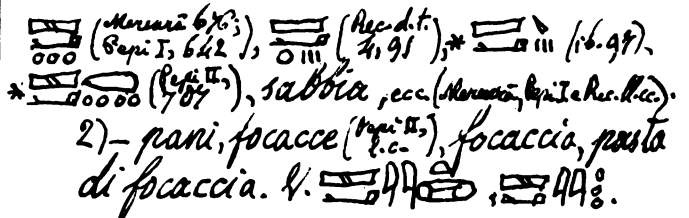 (Merenrâ 676; Pepi I, 642), (Rec. d. t. 4, 91), * (ib. 97),
* (Pepi II, 707), sabbia, ecc. (Merenrâ, Pepi I e Rec. ll. cc.).
2)– pani, focacce (Pepi II, l. c.), focaccia, pasta
di focaccia. V. , .